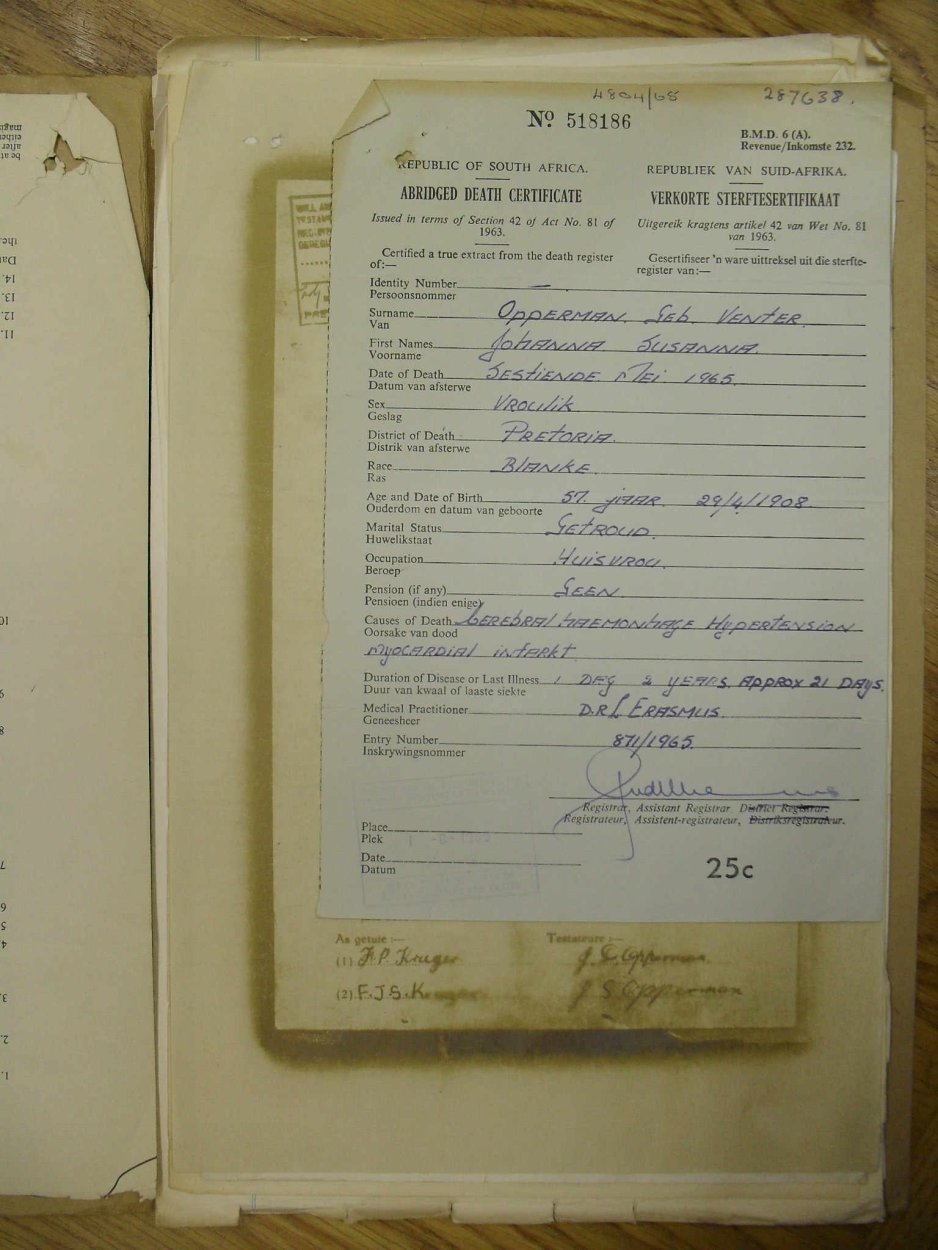 4804/65 287638.
No 518186
B.M.D. 6 (A).
Revenue/Inkomste 232.
REPUBLIC OF SOUTH AFRICA.
ABRIDGED DEATH CERTIFICATE
Issued in terms of Section 42 of Act No. 81 of
1963.
Certified a true extract from the death register
of:—
REPUBLIEK VAN SUID-AFRIKA.
VERKORTE STERFTESERTIFIKAAT
Uitgereik kragtens artikel 42 van Wet No. 81
van 1963.
Gesertifiseer 'n ware uittreksel uit die sterfte-
register van:—
Identity Number —
Persoonsnommer
Surname OPPERMAN GEB. VENTER
Van
First Names JOHANNA SUSANNA
Voorname
Date of Death SESTIENDE MEI 1965
Datum van afsterwe
Sex VROULIK
Geslag
District of Death PRETORIA
Distrik van afsterwe
Race BLANKE
Ras
Age and Date of Birth 57 JAAR 29/4/1908
Ouderdom en datum van geboorte
Marital Status GETROUD
Huwelikstaat
Occupation HUISVROU
Beroep
Pension (if any) GEEN
Pensioen (indien enige)
Causes of Death CEREBRAL HAEMONHAGE HYPERTENSION
Oorsake van dood
MYOCARDIAL INFARKT
Duration of Disease or Last Illness 1 DAY 2 YEARS APPROX 21 DAYS
Duur van kwaal of laaste siekte
Medical Practitioner D.R L ERASMUS
Geneesheer
Entry Number 871/1965
Inskrywingsnommer
Registrar, Assistant Registrar District Registrar.
Registrateur, Assistent-registrateur, Distriksregistrateur.
Place
Plek
Date
Datum
25c
As getuie :— Testateure :—
(1) F.P. Kruger J. C. Opperman
(2) F.J.S. J S Opperman
the.
14.
13.
12.
11.
10
9
8
7
6
5
4.
3.
2.
1.